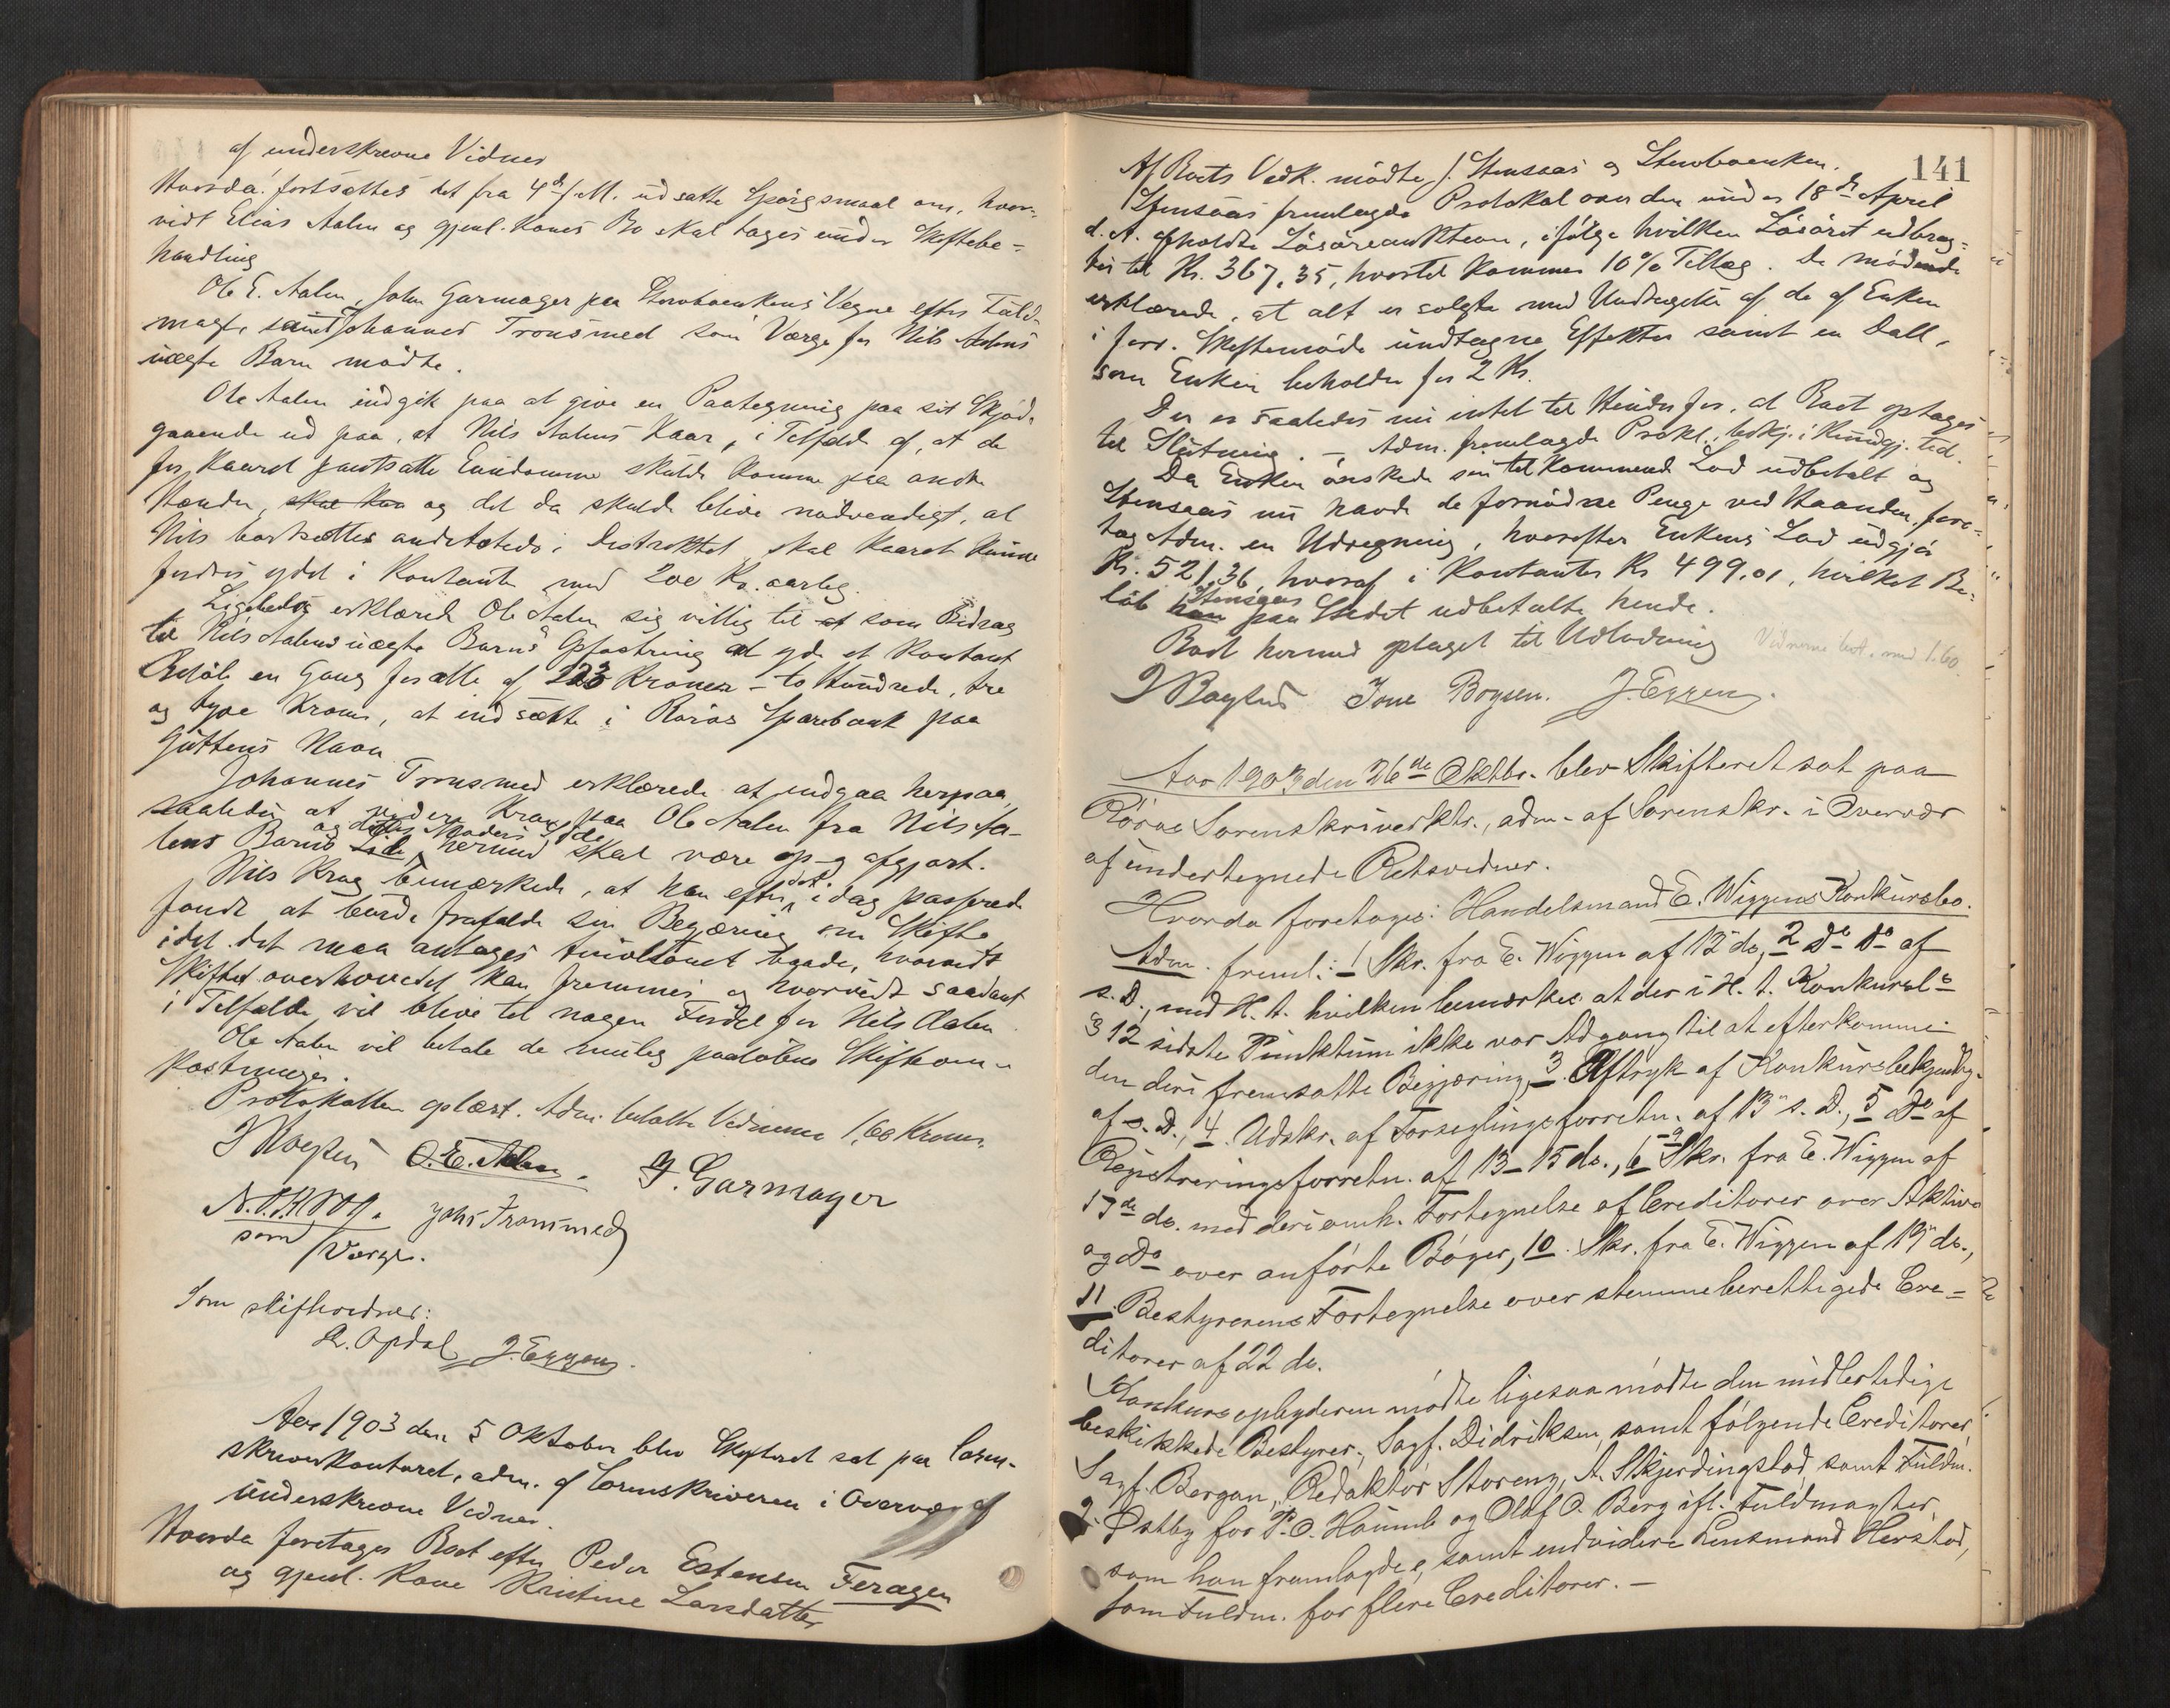 af underskrevne Vidner
Hvorda: fortsattes det fra 4de/ M. udsatte Spörgsmaal om, hvor-
vidt Elias Aalen og gjenl. Kones Bo skal tages under Skiftebe-
handling
Ole E. Aalen, John Garmager paa Stervboenkens Vegne efter Fuld-
magt, samt Johannes Tronsmed som Værge for Nils Aalens
uægte Barn mödte.
Ole Aalen indgik paa at give en Paategning paa sit Skjöde
gaaende ud paa, at Nils Aalens Kaar, i Tilfælde af, at de
for Kaaret pantsatte Eiendomme skulde komme paa andre
Hænder, skal kaa og det da skulde blive nödvendigt, at
Nils bortsættes andetsteds i Distriktet, skal Kaaret kunne
fordres ydet i Kontanter med 200 Kr. aarlig.
Ligeledes erklærede Ole Aalen sig villig til at som Bidrag
til Nils Aalens uægte Barns Opfostring at yde et Kontant
Belöb en Gang for alle af 223 Kroner - to Hundrede, tre
og tyve Kroner, at indsætte i Röros Sparebank paa
Guttens Navn
Johannes Tronsmed erklærede at indgaa herpaa,
saaledes at videre Krav paa Ole Aalen fra Nils Aa-
og dettes Moders Side
lens Barns Side, hermed skal være op- og afgjort.
Nils Krog bemærkede, at han efter det i dag passerede
fandt at burde frafalde sin Begjæring om Skifte
idet det maa antages tvivlsomt baade, hvorvidt
Skiftet overhovedet kan fremmes og hvorvidt saadant
i Tilfælde vil blive til nogen Fordel for Nils Aalen
Ole Aalen vil betale de mulig paalöbne Skifteom-
kostninger.
Protokollen oplæst. Adm. betalte Vidnerne 1,60 Kroner.
O. E. Aalen. J. Garmager
N. O. Krog. Johs Tronsmed
som Værge.
Som skiftevidner:
R. Opdal J. Eggen.
Aar 1903 den 5 Oktober blev Skifteret sat paa Soren-
skriverkontoret, adm. af Sorenskriveren i Overvær af
underskrevne Vidner.
Hvorda foretages Boet efter Peder Estensen Feragen
og gjenl. Kone Kristine Larsdatter
141
Af Boets Vedk. mödte J. Stensaas og Stervboenken.
Stensaas fremlagde Protokol over den under 18de April
d. A. afholdte Lösöreauktion, ifölge hvilken Lösöret udbrag-
tes til Kr. 367,35, hvortil kommer 10% Tillæg. De mödende
erklærede, at alt er solgt med Undtagelse af de af Enken
i forr. Skiftemöde undtagne Effekter samt en Dall,
som Enken beholder for 2 Kr.
Der er saaledes nu intet til Hinder for, at Boet optages
til Slutning. - Adm. fremlagde Prokl., bekj. i Kundgj. tid.
Da Enken önskede sin tilkommende Lod udbetalt og
Stensaas nu havde de fornödne Penge ved Haanden, fore-
tog Adm. en Udregning, hvorefter Enkens Lod udgjör
Kr. 521,36, hvoraf i Kontanter Kr 499,01, hvilket Be-
Stensaas
löb han paa Stedet udbetalte hende.
Boet hermed optaget til Udlodning Vidnerne bet. med 1.60
Jone Boysen. J. Eggen.
Aar 1903 den 26de Oktbr. blev Skifteret sat paa
Röros Sorenskriverktr., adm. af Sorenskr. i Overvær
af undertegnede Retsvidner.
Hvorda foretages: Handelsmand E. Wiggens Konkursbo.
Adm. freml.: 1 Skr. fra E. Wiggen af 12 ds, 2 Do Do af
s. D., med H. t. hvilken bemærkes at der i H. t. Konkursl's
§ 12 sidste Punktum ikke var Adgang til at efterkomme
den deri fremsatte Begjæring, 3. Aftryk af Konkursbekjendtg.
af s. D., 4. Udskr. af Forseglingsforretn. af 13 s. D., 5 Do af
Registreringsforretn. af 13-15 ds., 6-9 Skr. fra E. Wiggen af
17de ds. med deri omh. Fortegnelse af Creditorer over Aktiva
og Do over anförte Böger, 10. Skr. fra E. Wiggen af 19 ds.,
11. Bestyrerens Fortegnelse over stemmeberettigede Cre-
ditorer af 22 ds.
Konkursopbyderen mödte ligesaa mödte den midlertidige
beskikkede Bestyrer, Sagf. Didriksen, samt fölgende Creditorer,
Sagf. Bergan, Redaktör Støreng, A. Skjerdingstad, samt Fuldm.
J. Østby for P. O. Haumb og Olaf O. Berg ifl. Fuldmagter,
som han fremlagde, samt endvidere Lensmand Herstad,
som Fuldm. for flere Creditorer. -